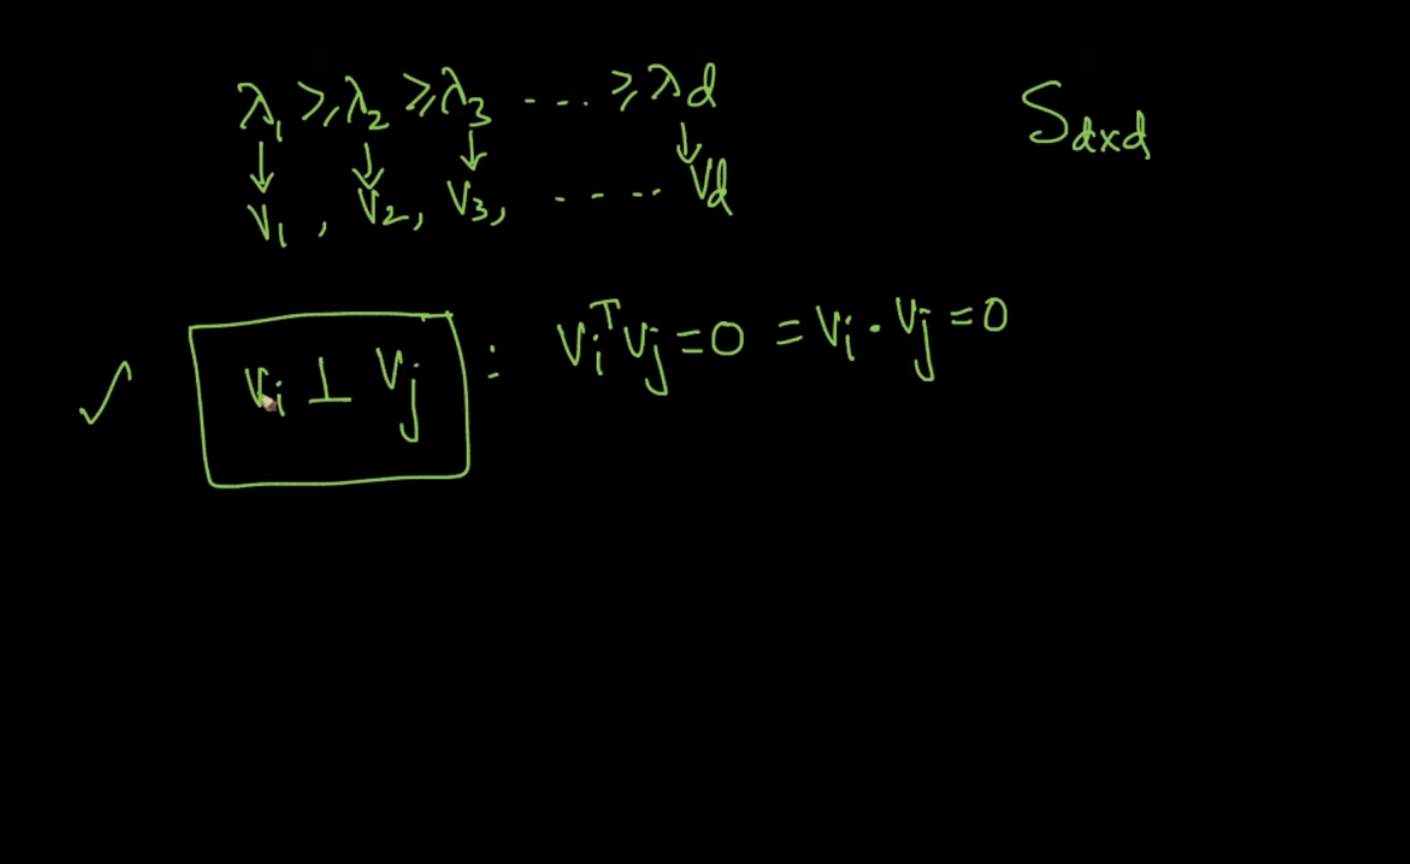 λ₁ ≥ λ₂ ≥ λ₃ ---- ≥ λd
S_{d×d}
↓ ↓ ↓ ↓
V₁, V₂, V₃, ----- Vd
✓ Vᵢ ⊥ Vⱼ : VᵢᵀVⱼ = 0 = Vᵢ · Vⱼ = 0